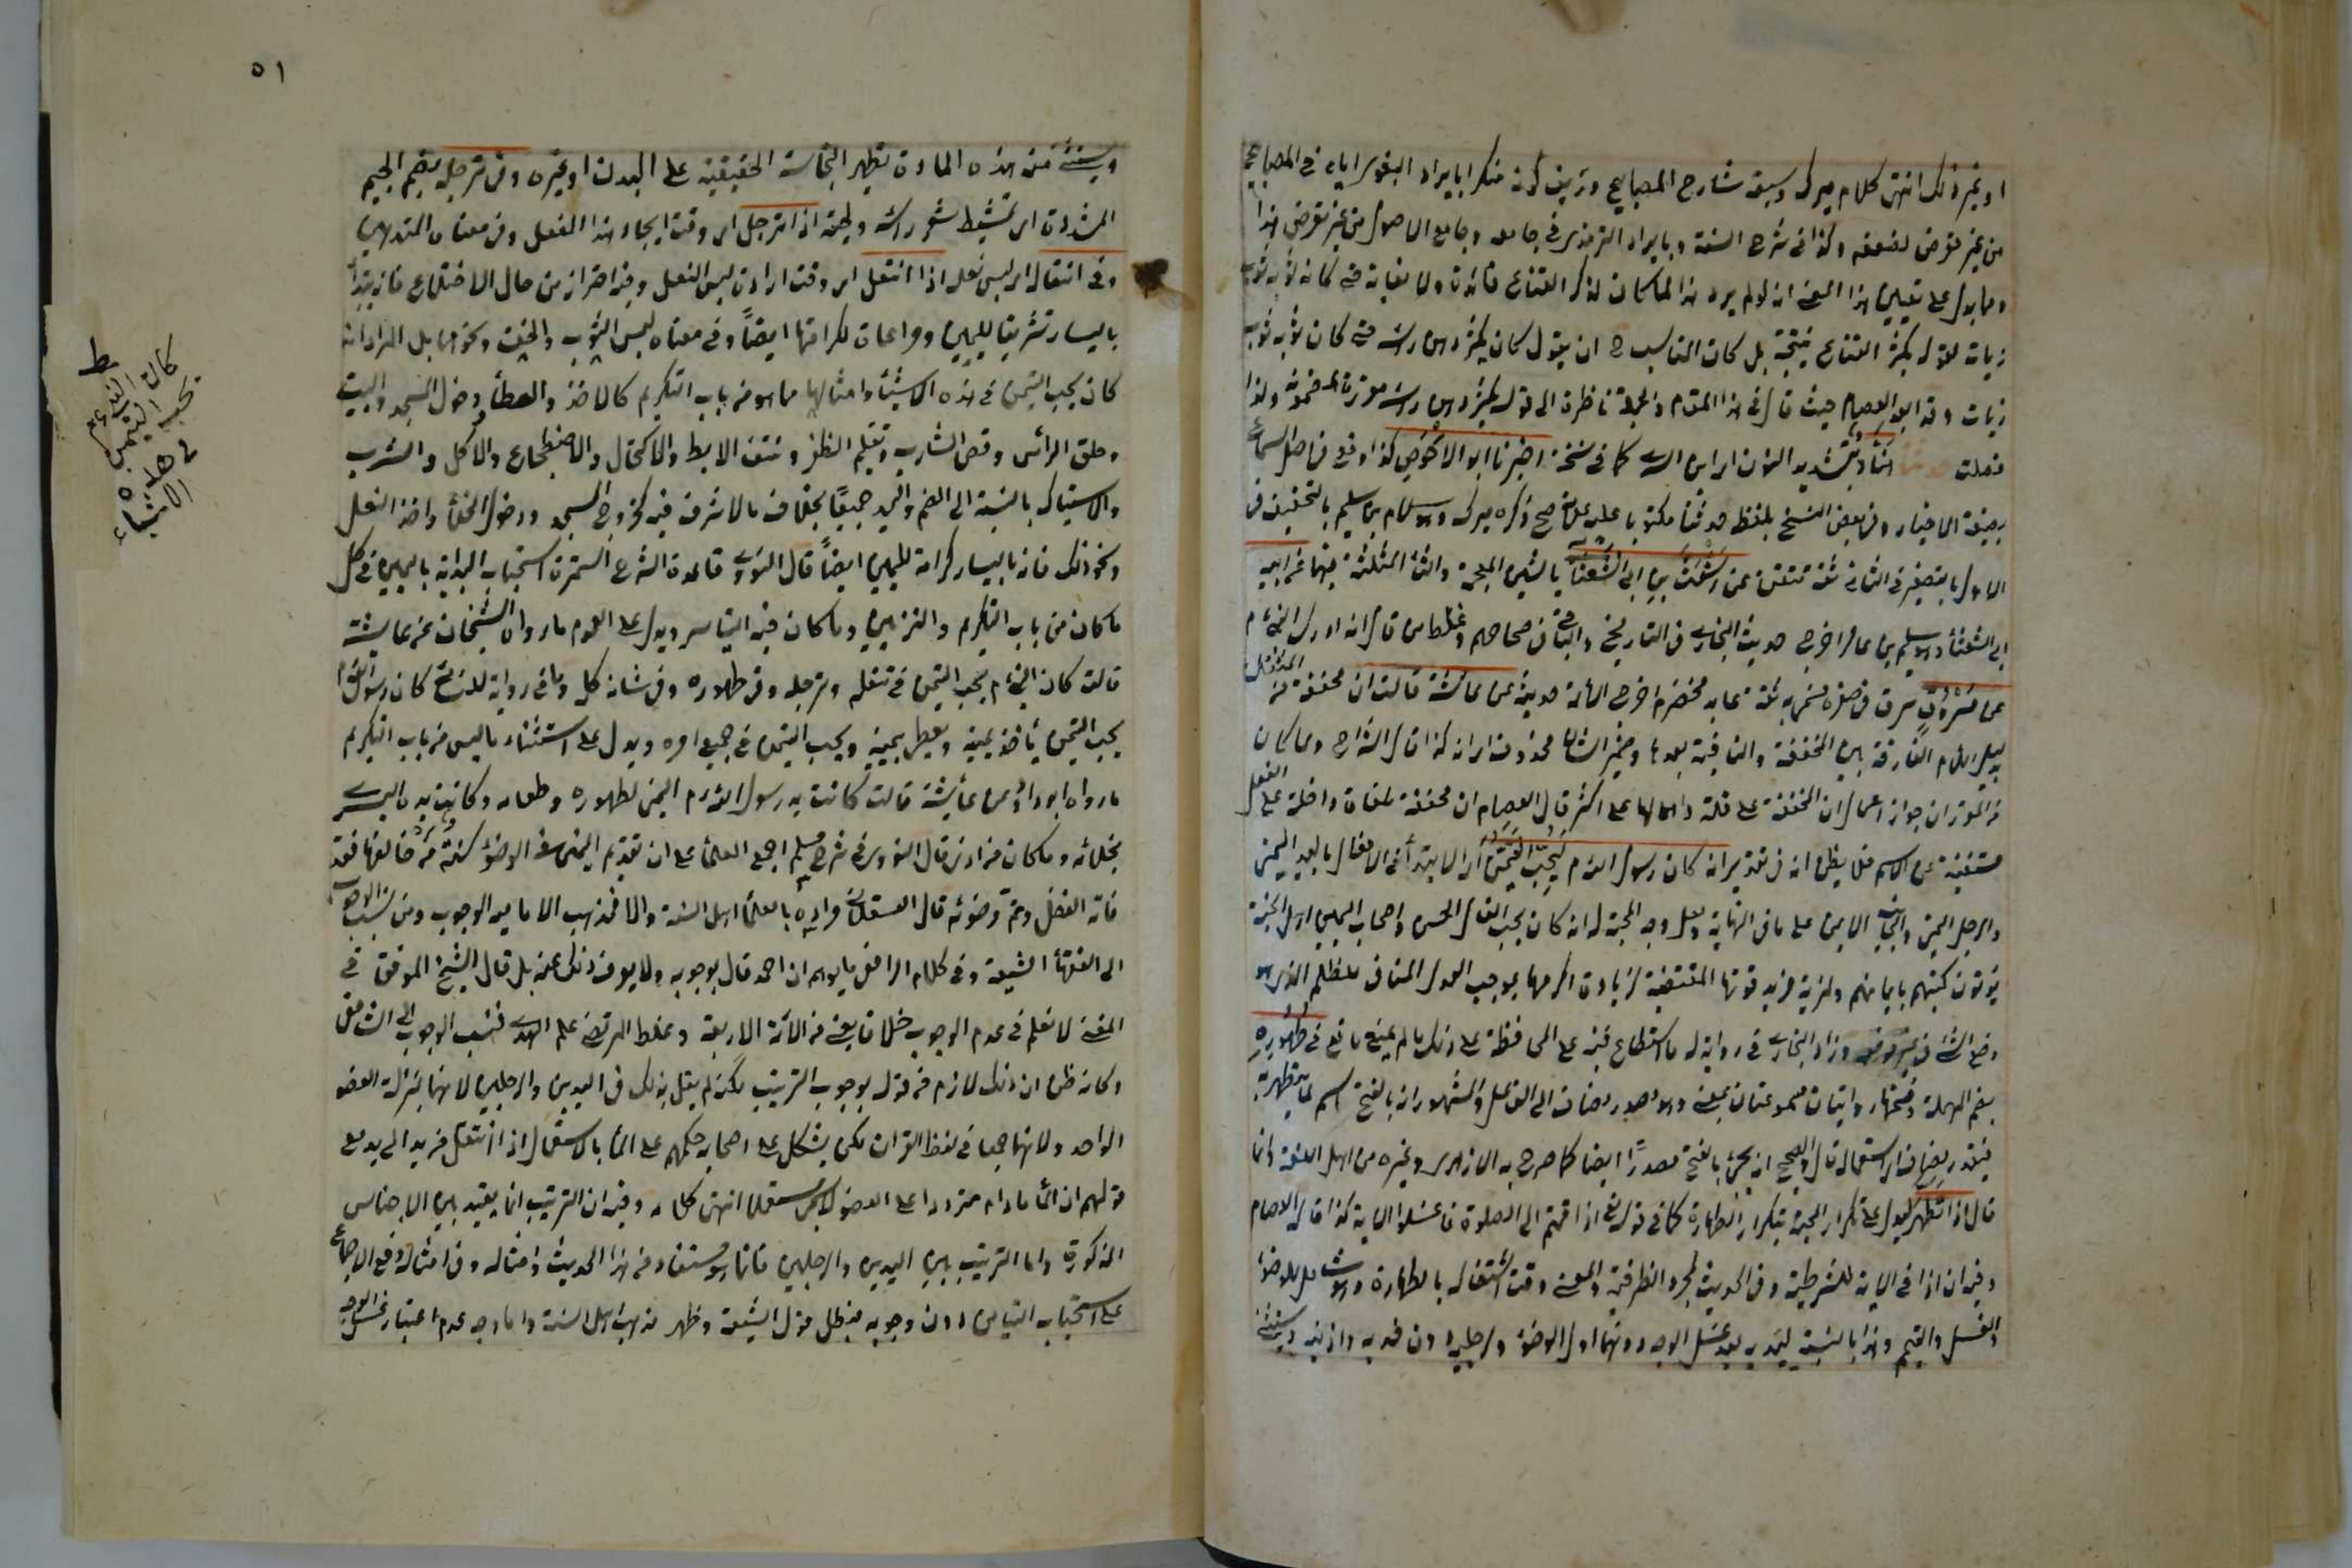 او غير ذلك انتهى كلام ميرك وسبقه شارح المصابيح كونه منكرا بايراد البغوي اياه في المصابيح
من غير تعرض لضعفه وكذا في شرح السنة وبايراد الترمذي في جامعه وجامع الاصول من غير تعرض لهذا
ومما يدل على تعيين هذا المعنى انه لو لم يرد هذا لما كان لذكر القناع فائدة ولا لغاية حتى كأنه ثوبه ثوب
زيات لقوله يكثر القناع نتيجة بل كان المناسب ح ان يقول كان يكثر دهن راسه حتى كان ثوبه ثوب
زيات العصام حيث قال في هذا المقام والجملة ناظرة الى قوله يكثر دهن راسه
ثنا هناد بتشديد النون اي ابن السري كما في نسخة اخبرنا ابو الاحوص كذا وقع في اصل السماع
بصيغة الاخبار وفي بعض النسخ بلفظ حدثنا مكتوبا عليه علامة صح ذكره ميرك وهو سلام بن سليم بالتخفيف في
الاول بالتصغير في الثاني ثقة متقن عن اشعث بن ابي الشعثاء بالشين المعجمة والثاء المثلثة فيهما عن ابيه
ابي الشعثاء وهو سليم بن اخرج حديثه البخاري في التاريخ والباقي في صحاحهم وغلط من قال انه ادرك النبي م
عن مسروق سرق في صغره ثقة عابد مخضرم اخرج الائمة حديثه عن عائشة قالت ان مخففة من المثقل
بدليل اللام الفارقة بين المخففة والنافية بعدها وضمير الشان محذوف اي انه كذا قال الشارح
من المقرر ان جواز اعمال ان المخففة على قلة واهمالها على اكثر قال العصام ان مخففة ملغاة داخلة على الفعل
مستغنية عن الاسم فلا يظن انه في تقدير انه كان رسول الله م ليحب التيمن اي الابتداء في الافعال باليد اليمنى
والرجل اليمنى والجانب الايمن على ما في النهاية ولعل وجه المحبة له انه كان يحب الفال الحسن واصحاب اليمين اهل الجنة
يؤتون كتبهم بايمانهم ولمزيد قوتها المقتضية لزيادة اكرامها بموجب العدل المنافي للظلم الذي هو
وضع الشئ في غير موضعه وزاد البخاري في رواية له ما استطاع فنبه على المحافظة على ذلك ما لم يمنع مانع في طهوره
بضم المهملة وفتحها روايتان مسموعتان بمعنى وهو مصدر مضاف الى الفاعل والمشهور انه بالفتح اسم لما يتطهر به
فيقدر مضاف اي استعماله قال والصحيح انه يجئ بالفتح مصدرًا ايضا كما صرح به الازهري وغيره من اهل اللغة وانما
قال اذا تطهر ليدل على تكرار المحبة بتكرار الطهارة كما في قوله تعالى اذا قمتم الى الصلوة فاغسلوا الاية كذا قال العصام
وفيه ان اذا في الاية للشرطية وفي الحديث لمجرد الظرفية والمعنى وقت اشتغاله بالطهارة وهو شامل للوضوء
والغسل والتيمم وهذا بالنسبة ليديه بعد غسل الوجه دونهما اول الوضوء ورجليه دون خديه واذنيه ويستثنى
٥١
ويستثنى من هذه المادة تطهير النجاسة الحقيقية على البدن او غيره وفي ترجله بضم الجيم
المشددة اي تمشيط شعر راسه ولحيته اذا ترجل اي وقت ايجاد هذا الفعل وفي معناه التدهين
وفي انتعاله اي لبس نعله اذا انتعل اي وقت ارادة لبس النعل وفيه احتراز من حال الاختلاع فانه يبتدأ
باليسار تشريفا لليمين ومراعاة لكرامتها ايضًا وفي معناه لبس الثوب والخف ونحوهما بل المراد انه
كان يحب التيمن في هذه الاشياء وامثالها مما هو من باب التكريم كالاخذ والعطاء ودخول المسجد والبيت
وحلق الراس وقص الشارب وتقليم الظفر ونتف الابط والاكتحال والاضطجاع والاكل والشرب
والاستياك بالنسبة الى الفم واليد جميعًا بخلاف ما لا شرف فيه كخروج المسجد ودخول الخلاء واخذ النعل
ونحو ذلك فانه باليسار كرامة لليمين ايضًا قال النووي قاعدة الشرع المستمرة استحباب البداية باليمين في كل
ما كان من باب التكريم والتزيين وما كان فيه التياسر ويدل على العموم ما رواه الشيخان عن عائشة
قالت كان النبي م يحب التيمن في تنعله وترجله وفي طهوره وفي شانه كله وما في رواية للنسائي كان رسول الله م
يحب التيمن يأخذ بيمينه ويعطي بيمينه ويحب التيمن في جميع امره ويدل على استثناء ما ليس من باب التكريم
ما رواه ابو داود عن عائشة قالت كانت يد رسول الله م اليمنى لطهوره وطعامه وكانت يده اليسرى
لخلائه وما كان من اذى قال النووي في شرح مسلم اجمع العلماء على ان تقديم اليمنى في الوضوء سنة من خالفها فقد
فاته الفضل وتم وضوئه قال العسقلاني مراده بالعلماء اهل السنة والا فمذهب الامامية الوجوب ومن نسب الوجوب
الى الفقهاء الشيعة وفي كلام الرافعي ما يوهم ان احمد قال بوجوبه ولا يعرف ذلك عنه بل قال الشيخ الموفق في
المغني لا نعلم في عدم الوجوب خلافا يعني من الائمة الاربعة وغلط المرتضى علم الهدى فنسب الوجوب الى الشافعي
وكأنه ظن ان ذلك لازم من قوله بوجوب الترتيب لكن لم يقل بذلك في اليدين والرجلين لانهما بمنزلة العضو
الواحد ولانهما جمعا في لفظ القران لكن يشكل على اصحابه حكمهم على الماء بالاستعمال اذا انتقل من يد الى يد مع
قولهم ان الماء ما دام مترددا على العضو لا يسمى مستعملا انتهى كلامه وفيه ان الترتيب انما يفيد بين الاجناس
المذكورة واما الترتيب بين اليدين والرجلين فانما هو مستفاد من هذا الحديث وامثاله وفي امثاله وقع الاجماع
على استحباب التيامن دون وجوبه فبطل قول الشيعة وظهر مذهب اهل السنة واما وجه عدم اعتبار غسل الوجه
كان النبي عم
يحب التيمن
في هذه
الاشياء